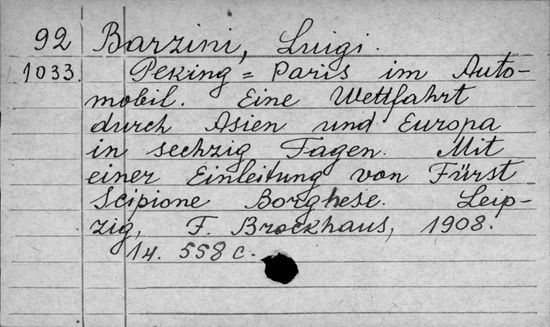 92 Barzini, Luigi.
1033. Peking = Paris im Auto-
mobil. Eine Wettfahrt
durch Asien und Europa
in sechzig Tagen. Mit
einer Einleitung von Fürst
Scipione Borghese. Leip-
zig, F. Brockhaus, 1908.
14. 558 c.